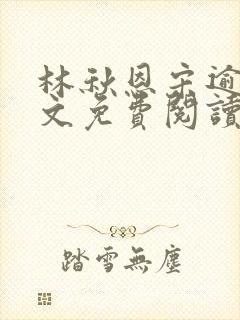 林秋恩宋逾
文免費閱讀
踏雪無塵